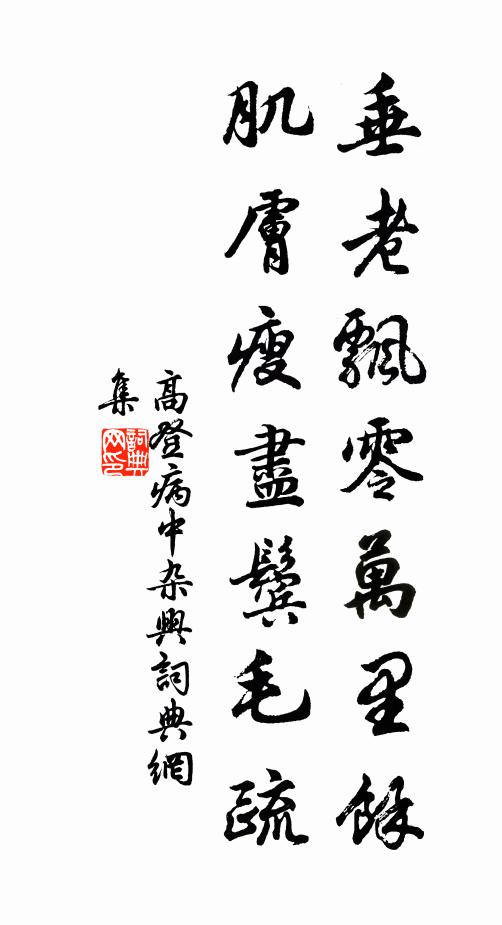 垂老飄零萬里餘
肌膚瘦盡鬓毛疏
高登病中杂興詞典網
集
詞典
网印